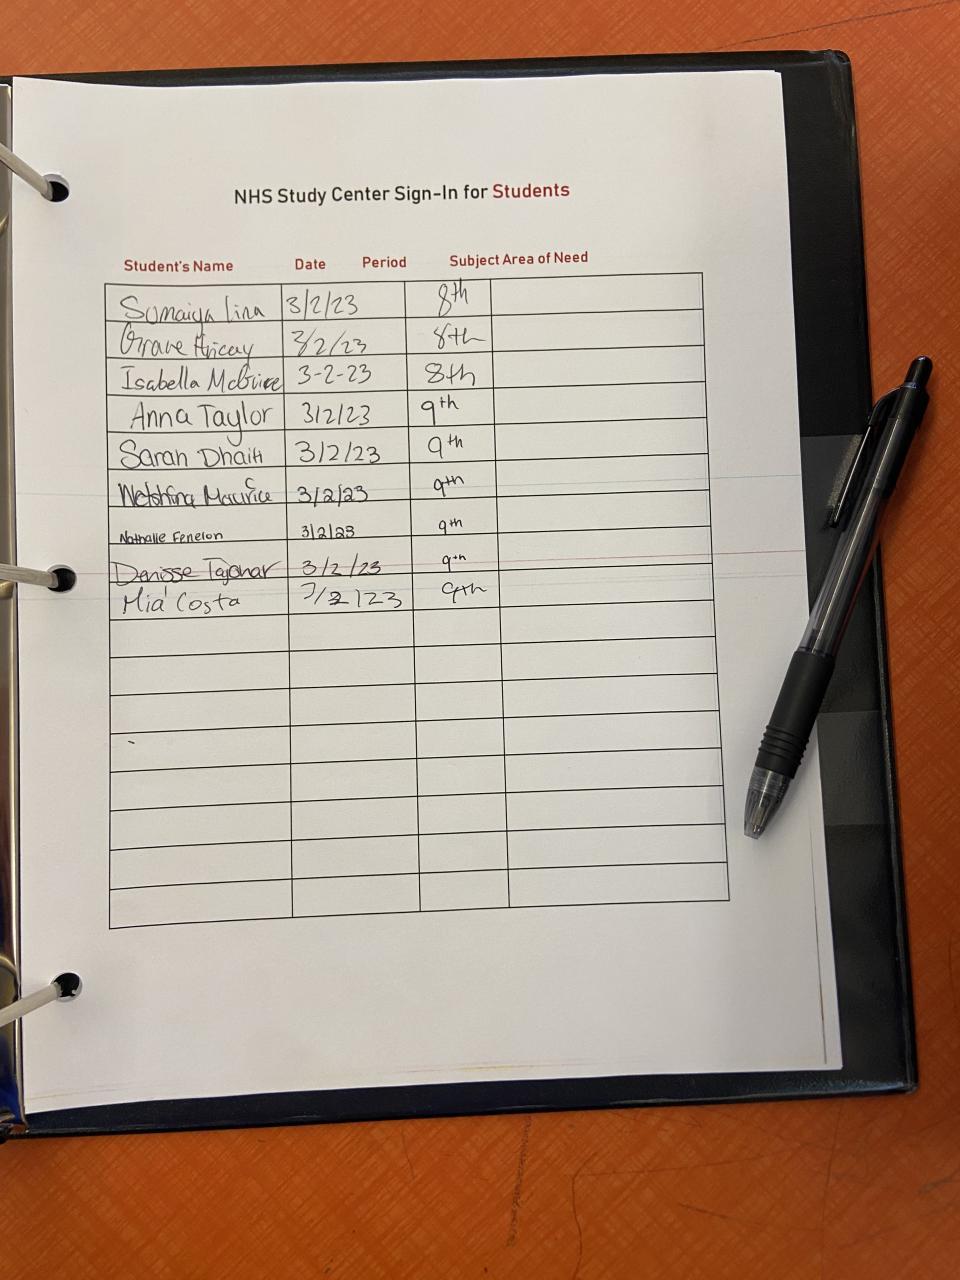 NHS Study Center Sign-In for Students
Student's Name Date Period Subject Area of Need
Sumaiya Lina 3/2/23 8th
3/2/23 8th
Isabella McGuire 3-2-23 8th
Anna Taylor 3/2/23 9th
Sarah Dhaiti 3/2/23 9th
Maurice 3/2/23 9th
Nathalie Fenelon 3/2/23 9th
Denisse 3/2/23 9th
Mia Costa 3/2/23 9th